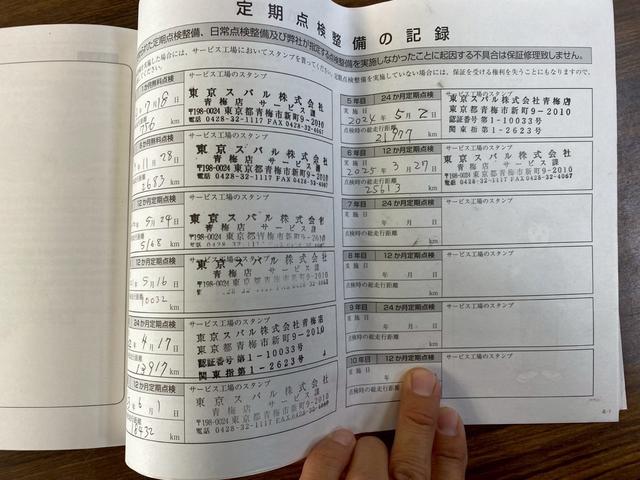 定期点検整備の記録
られた定期点検整備、日常点検整備及び弊社が指定する点検整備を実施しなかったことに起因する不具合は保証修理致しません。
実施した場合には、サービス工場においてスタンプを貰ってください。
定期点検を実施していない場合には、保証を受ける権利を失うこともありますので、
無料点検
サービス工場のスタンプ
7月18日
786 km
東京スバル株式会社
青梅店 サービス課
〒198-0024 東京都青梅市新町9-2010
電話 0428-32-1117 FAX 0428-32-6067
6か月無料点検
サービス工場のスタンプ
11月28日
2683 km
東京スバル株式会社
青梅店 サービス課
〒198-0024 東京都青梅市新町9-2010
電話 0428-32-1117 FAX 0428-32-6067
12か月定期点検
サービス工場のスタンプ
5月24日
5168 km
東京スバル株式会社
青梅店 サービス課
〒198-0024 東京都青梅市新町9-2010
電話 0428-32-1117
か月定期点検
サービス工場のスタンプ
5月16日
10032 km
東京スバル株式会社
青梅店 サービス課
〒198-0024 東京都青梅市新町9-2010
か月定期点検
サービス工場のスタンプ
4月17日
13917 km
東京スバル株式会社青梅店
東京都青梅市新町9-2010
認証番号 第1-10033号
関東指第1-2623号
12か月定期点検
サービス工場のスタンプ
6月1日
18432 km
東京スバル株式会社
青梅店 サービス課
〒198-0024 東京都青梅市新町9-2010
電話 0428-32-1117 FAX 0428-32-6067
5年目 24か月定期点検
サービス工場のスタンプ
実施日
2024年5月2日
点検時の総走行距離
21977 km
東京スバル株式会社青梅店
東京都青梅市新町9-2010
認証番号 第1-10033号
関東指第1-2623号
6年目 12か月定期点検
サービス工場のスタンプ
実施日
2025年3月27日
点検時の総走行距離
25613 km
東京スバル株式会社
青梅店 サービス課
〒198-0024 東京都青梅市新町9-2010
電話 0428-32-1117 FAX 0428-32-6067
7年目 24か月定期点検
サービス工場のスタンプ
実施日
年 月 日
点検時の総走行距離
km
8年目 12か月定期点検
サービス工場のスタンプ
実施日
年 月 日
点検時の総走行距離
km
9年目 24か月定期点検
サービス工場のスタンプ
実施日
年 月 日
点検時の総走行距離
km
10年目 12か月定期点検
サービス工場のスタンプ
実施日
年
点検時の総走行距離